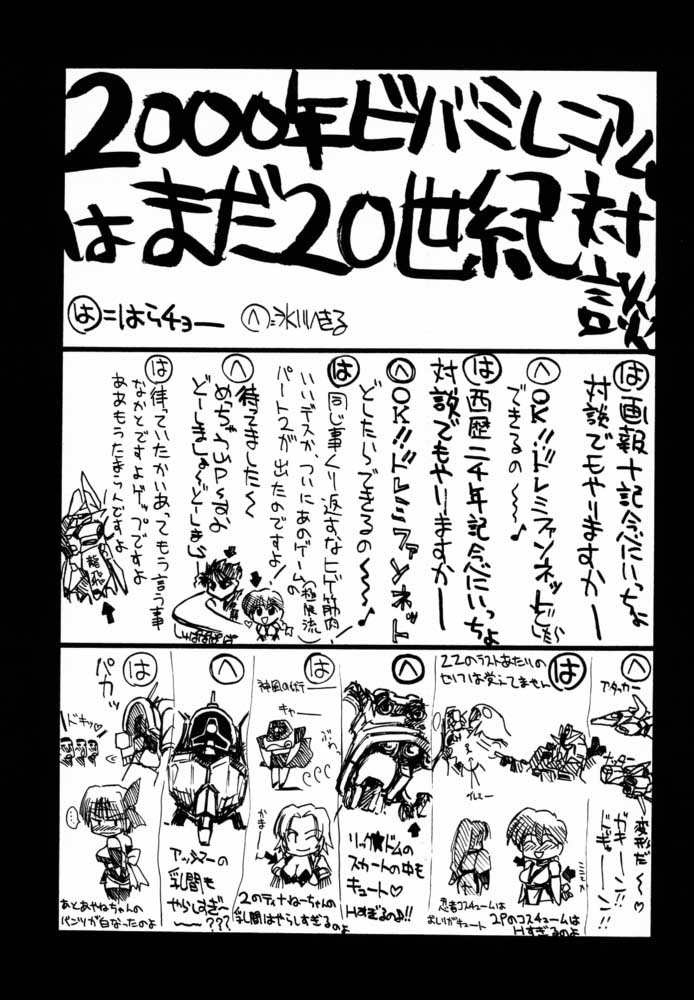 2000年ビバミレニアム
はまだ20世紀対談
は=はらチョー
へ=氷川へきる
は 画報十記念にいっちょ
対談でもやりますかー
へ OK!!ドレミファンネット
できるの〜〜♪
は 西歴二千年記念にいっちょ
対談でもやりますかー
へ OK!!ドレミファンネット
どしたらできるの〜〜〜♪
は 同じ事くり返すなヒゲ筋肉
(極限流)
いいデスか、ついにあのゲームの
パート2が出たのですよ!
へ 待ってました〜
めっちゃUPっすよ
どーしましょ〜どーしましょ
は 待っていたかいあってもう言う事
なかとですよゲップですよ
ああもうたまらんですよ
龍飛
へ
アタッカー
変形だ〜♡
ガキーン!!
ドギューン!!
は
ZZのラストあたりの
セリフは覚えてません
忍者コスチュームは
おしりがキュート
2Pのコスチュームは
Hすぎるのよ
へ
リック★ドムの
スカートの中も
キュート♡
Hすぎるのよ!!
は
神風の術ー
キャー
ぶわっ
2のティナねーちゃんの
乳間はやらしすぎる
のよ
へ
アッシマーの
乳間も
やらしすぎ
〜〜???
は
パカッ
ドキッ♡
・・・
あとあやねちゃんの
パンツが白なったのよ